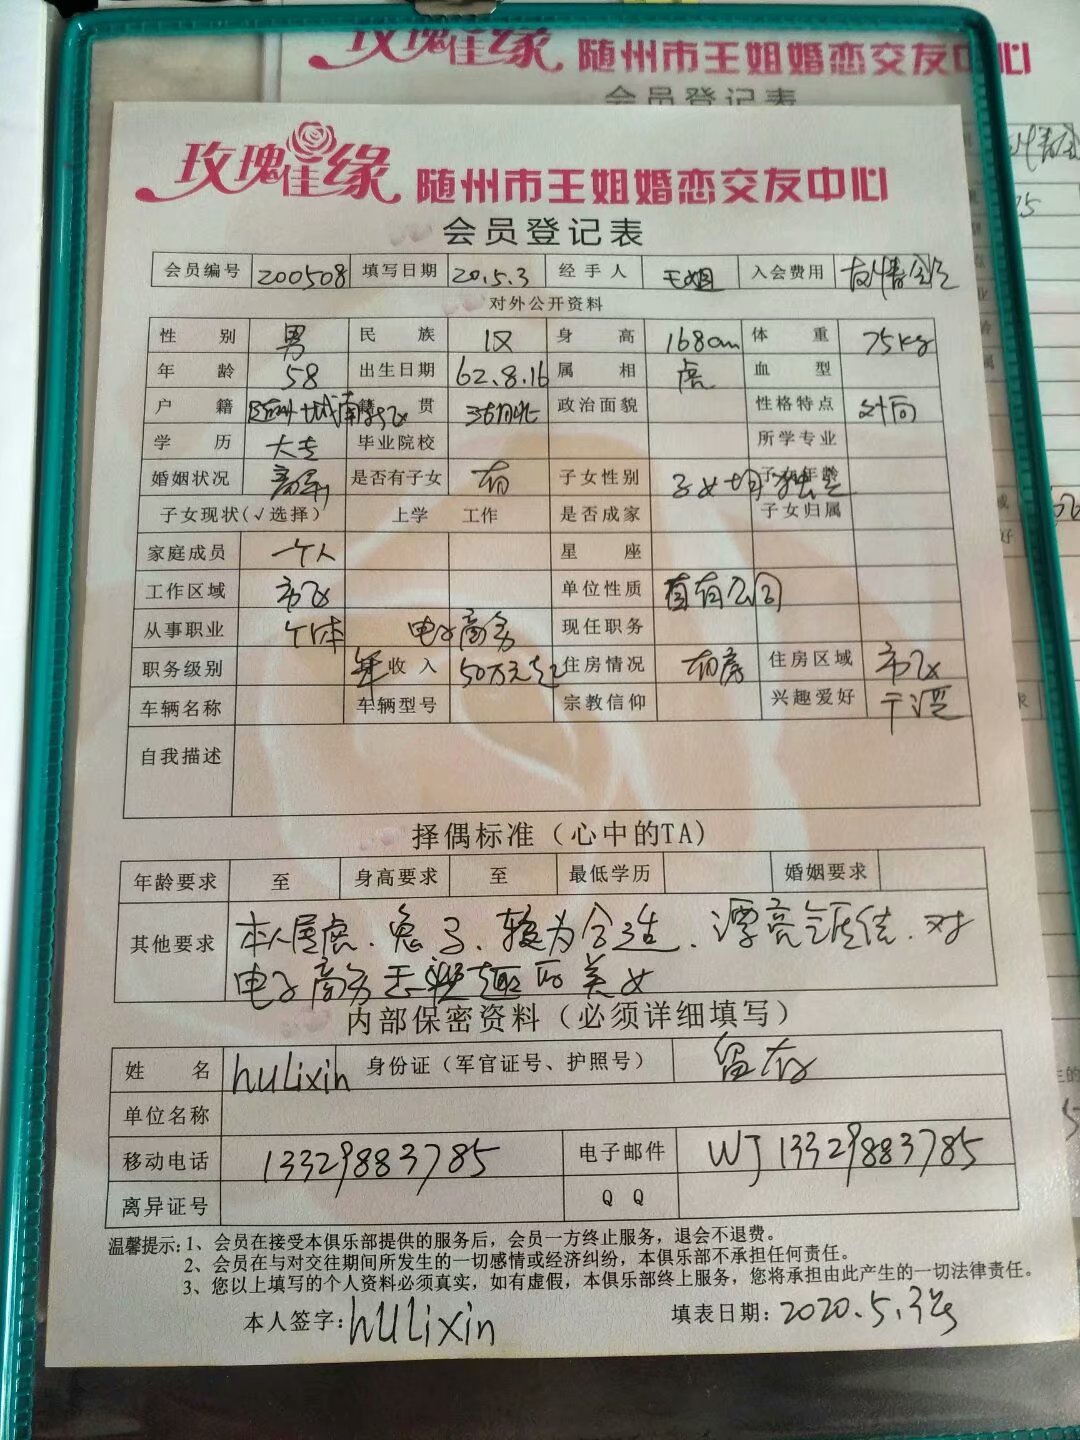 玫瑰佳缘 随州市王姐婚恋交友中心
会员登记表
玫瑰佳缘 随州市王姐婚恋交友中心
会员登记表
会员编号 200508 填写日期 20.5.3 经手人 王姐 入会费用 友情
对外公开资料
性别 男 民族 汉 身高 168cm 体重 75kg
年龄 58 出生日期 62.8.16 属相 虎 血型
户籍 随州城南 籍贯 湖北 政治面貌 性格特点 外向
学历 大专 毕业院校 所学专业
婚姻状况 离异 是否有子女 有 子女性别 子女均独立 子女年龄
子女现状(√选择) 上学 工作 是否成家 子女归属
家庭成员 一个人 星座
工作区域 市区 单位性质 有公司
从事职业 个体 电子商务 现任职务
职务级别 年收入 50万元起 住房情况 有房 住房区域 市区
车辆名称 车辆型号 宗教信仰 兴趣爱好
自我描述
择偶标准（心中的TA）
年龄要求 至 身高要求 至 最低学历 婚姻要求
其他要求 本人属虎、兔、较为合适、漂亮 对
电子商务 兴趣的美女
内部保密资料（必须详细填写）
姓名 hulixin 身份证（军官证号、护照号） 留存
单位名称
移动电话 13329883785 电子邮件 WJ13329883785
离异证号 QQ
温馨提示:1、会员在接受本俱乐部提供的服务后，会员一方终止服务，退会不退费。
2、会员在与对交往期间所发生的一切感情或经济纠纷，本俱乐部不承担任何责任。
3、您以上填写的个人资料必须真实，如有虚假，本俱乐部终上服务，您将承担由此产生的一切法律责任。
本人签字: hulixin 填表日期: 2020.5.3号